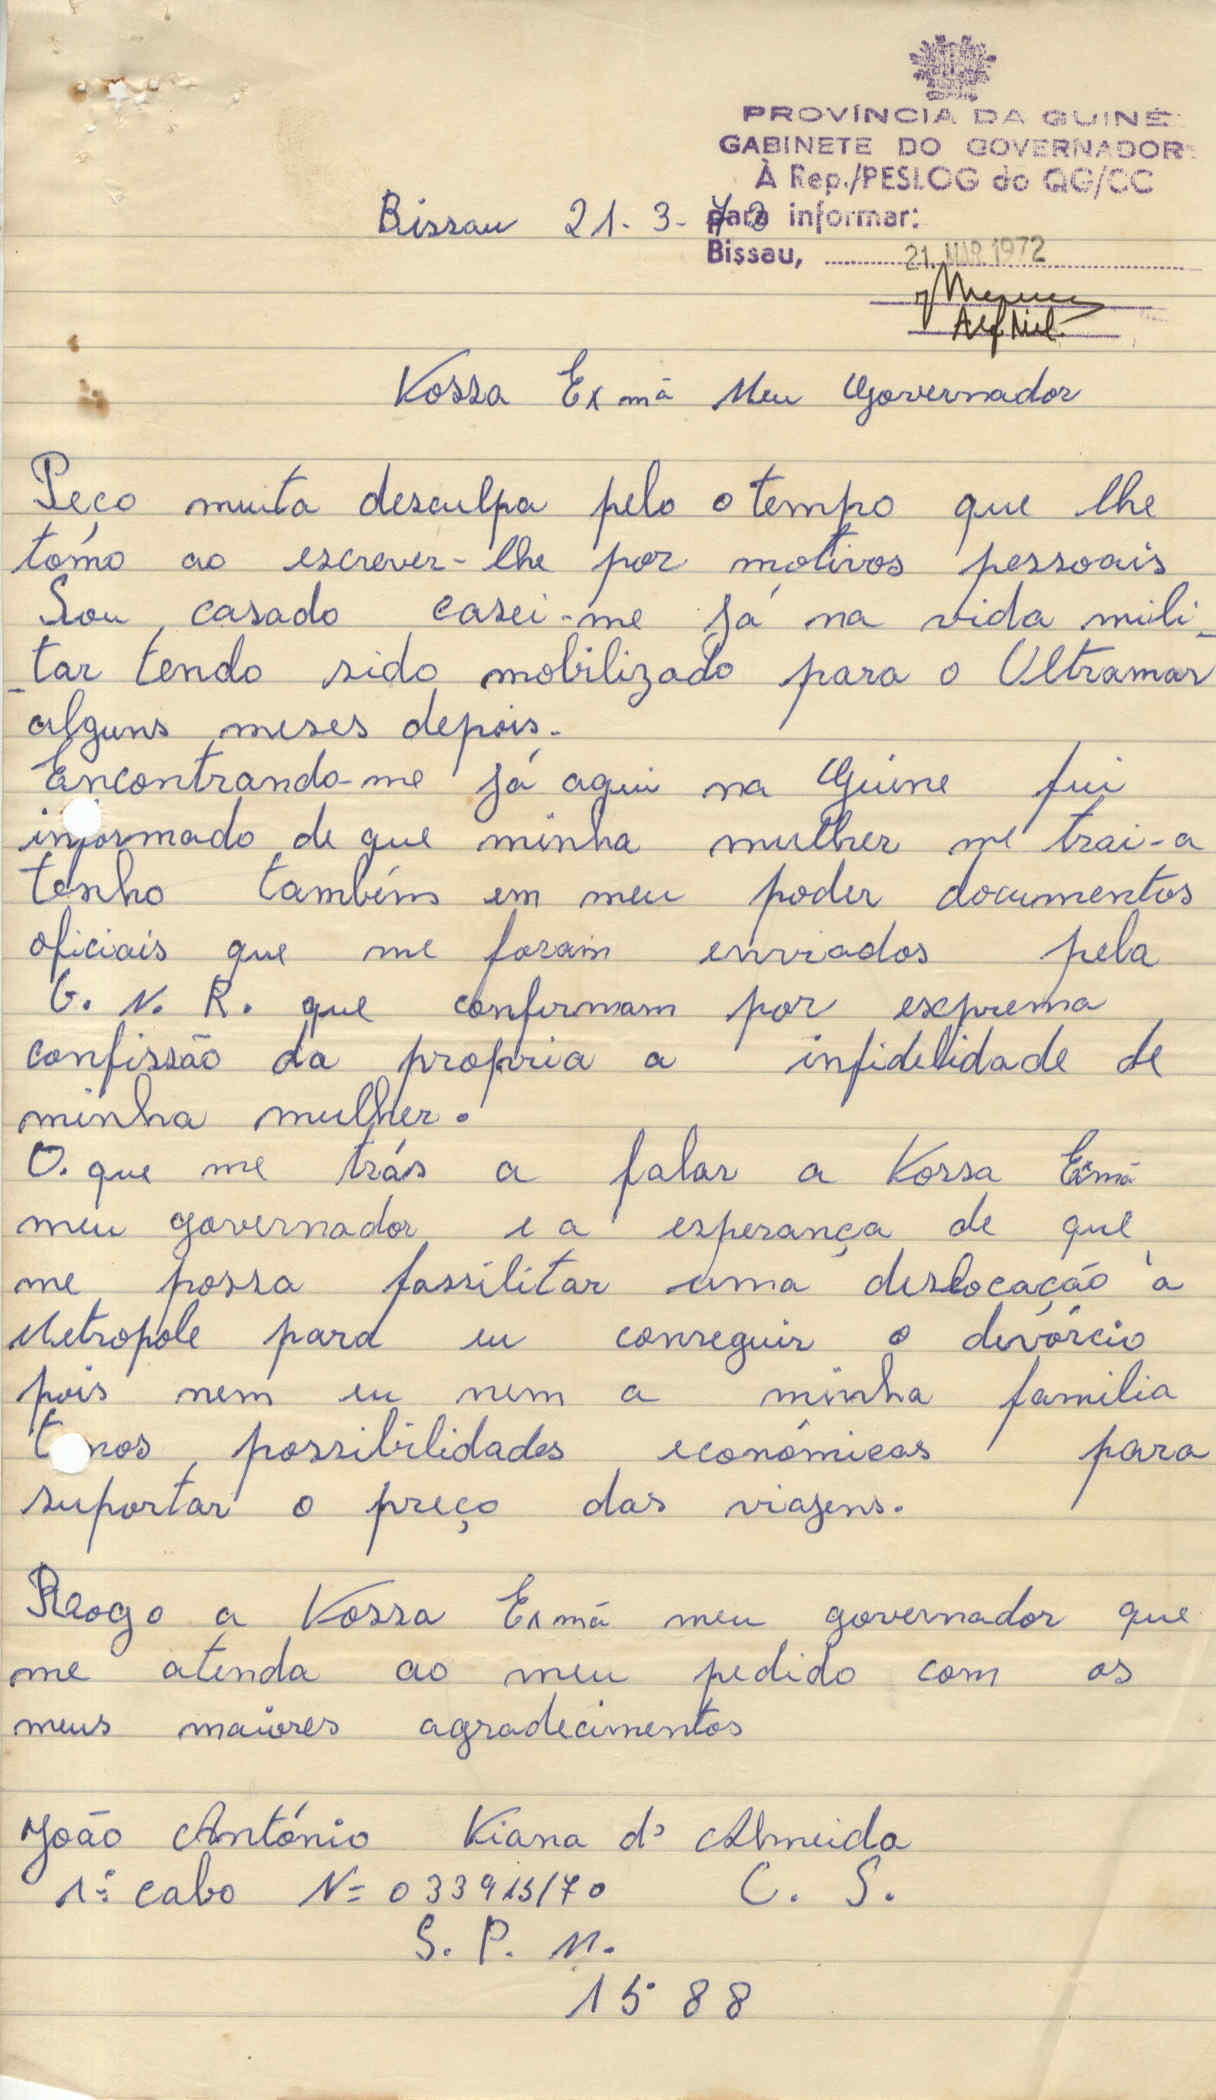 PROVÍNCIA DA GUINÉ
GABINETE DO GOVERNADOR
À Rep./PESLOG do QG/CC
para informar:
Bissau, 21. MAR. 1972
Alf. Mil.
Bissau 21-3-72
Vossa Exmã Meu Governador
Peço muita desculpa pelo o tempo que lhe
tómo ao escrever-lhe por motivos pessoais
Sou casado casei-me já na vida mili_
_tar tendo sido mobilizado para o Ultramar
alguns meses depois.
Encontrando-me já aqui na Guine fui
informado de que minha mulher me trai-a
tenho também em meu poder documentos
oficiais que me foram enviados pela
G. N. R. que confirmam por exprema
confissão da propria a infidelidade de
minha mulher.
O. que me trás a falar a Vossa Exmã
meu governador e a esperança de que
me possa fassilitar uma deslocação á
Metropole para eu conseguir o divórcio
pois nem eu nem a minha familia
temos possibilidades económicas para
suportar o preço das viagens.
Rogo a Vossa Exmã meu governador que
me atenda ao meu pedido com os
meus maiores agradecimentos
João António Viana d' Almeida
1º cabo Nº 033915/70 C. S.
S. P. M.
1588